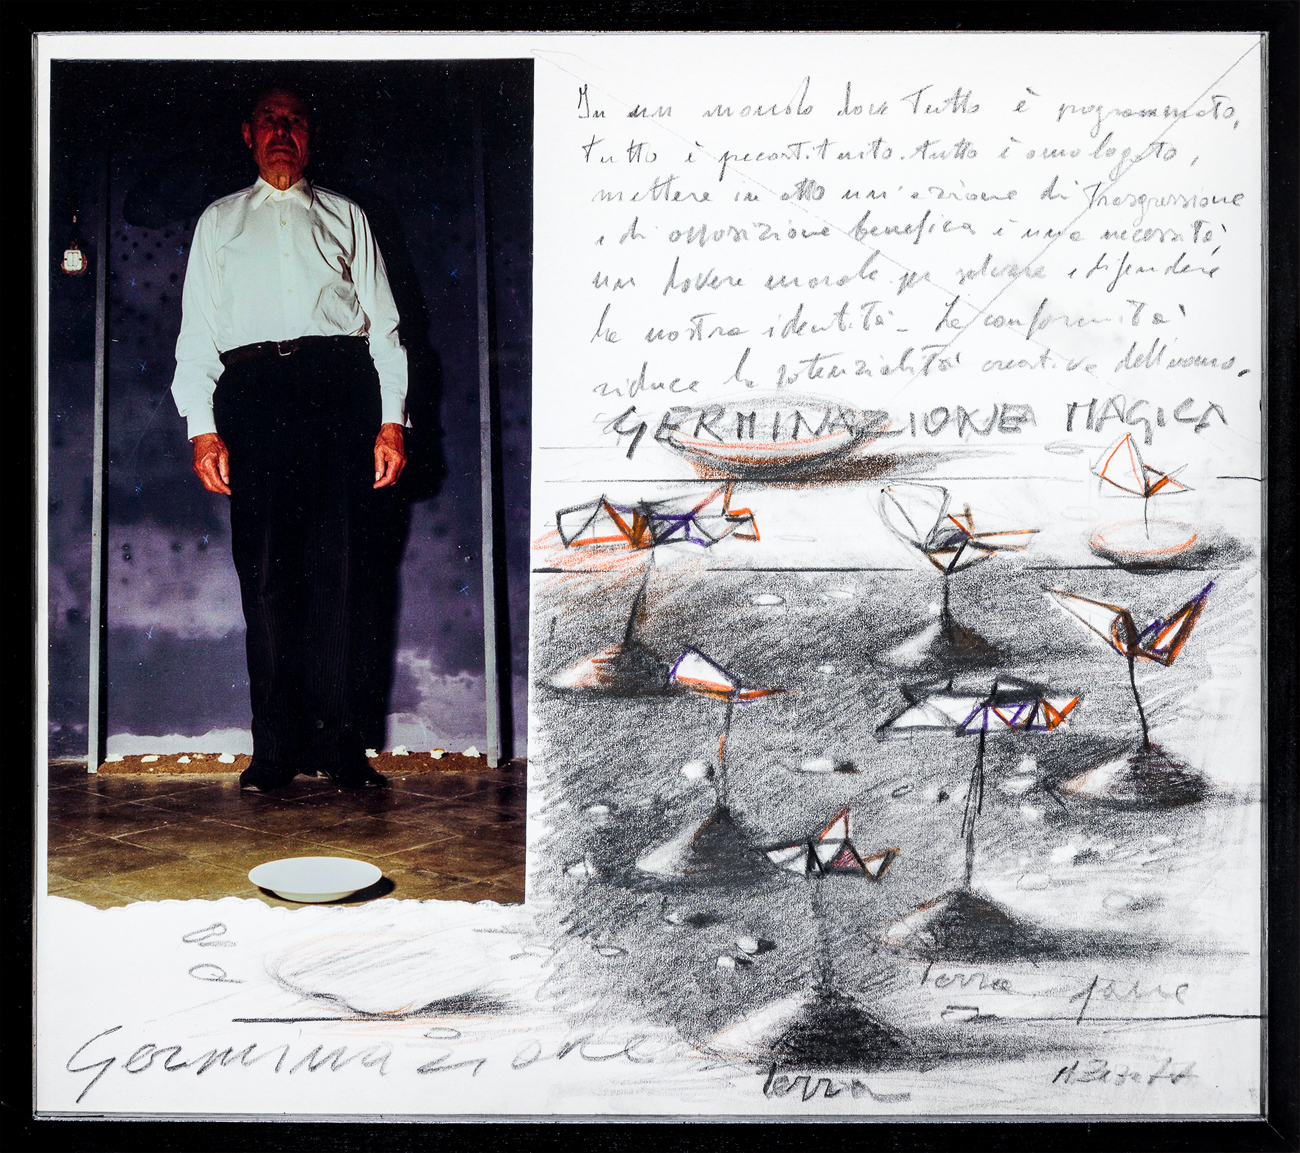 In un mondo dove tutto è programmato,
tutto è precostituito. tutto è omologato,
mettere in atto un'azione di trasgressione
e di opposizione benefica è una necessità,
un dovere morale per salvare e difendere
la nostra identità - La conformità
riduce le potenzialità creative dell'uomo.
GERMINAZIONE MAGICA
Terra pane
Germinazione
Terra